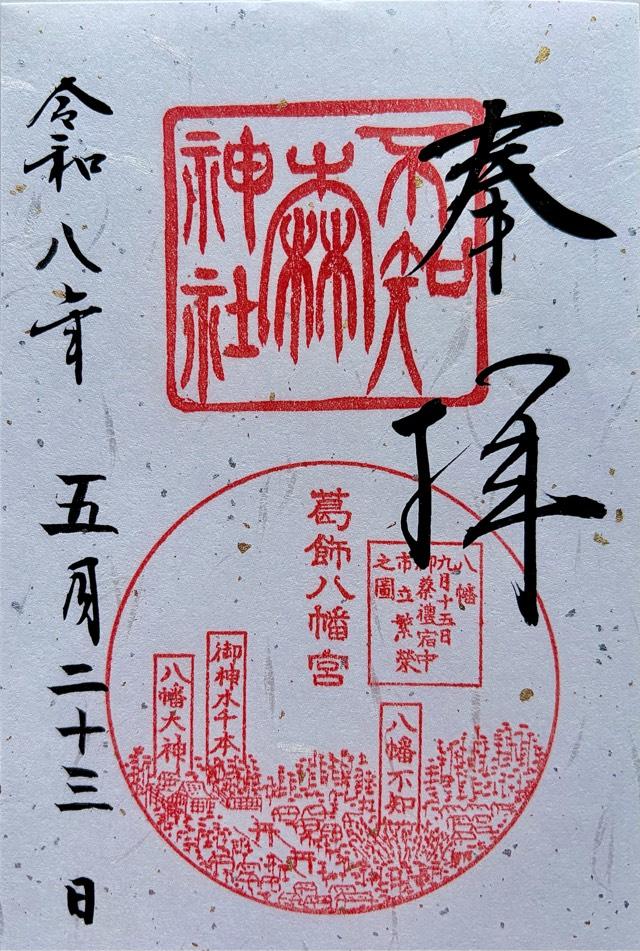 奉拝
不知
森
神社
葛飾八幡宮
八幡
九月十五日
御祭禮宿中
市立繁榮
之圖
八幡不知
御神木千本
八幡大神
令和八年 五月二十三日